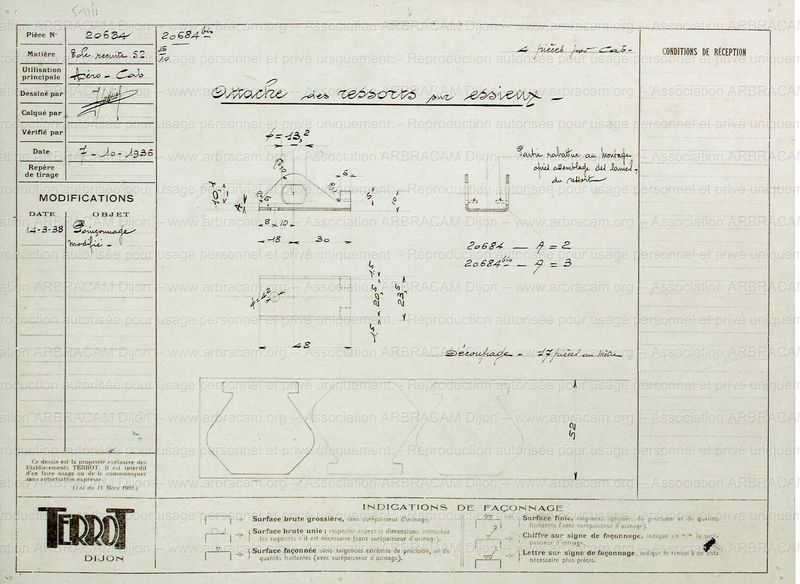 Pièce N° 20684 20684 bis
Matière Tole recuite 52 15/10
Utilisation principale Aéro-Cab
Dessiné par
Calqué par
Vérifié par
Date 7-10-1936
Repère de tirage
MODIFICATIONS
DATE OBJET
14-3-38 Poinçonnage modifié -
4 pièces par Cab-
CONDITIONS DE RÉCEPTION
Attache des ressorts sur essieux -
Partie rabattue au montage
après assemblage des lames
du ressort
20684 — A = 2
20684 bis — A = 3
6
A
8 x 10
18 30
48
20,5
23,5
Découpage - 17 pièces au mètre
52
Ce dessin est la propriété exclusive des
Etablissements TERROT. Il est interdit
d'en faire usage ou de le communiquer
sans autorisation expresse.
(Loi du 11 Mars 1902.)
TERROT
DIJON
INDICATIONS DE FAÇONNAGE
Surface brute grossière, sans surépaisseur d'usinage.
Surface brute unie; respecter aspect et dimensions, retoucher
les rugosités s'il est nécessaire (sans surépaisseur d'usinage).
Surface façonnée sans exigences extrêmes de précision, ou de
qualités frottantes (avec surépaisseur d'usinage).
Surface finie, exigences spéciales de précision et de qualités
frottantes (avec surépaisseur d'usinage).
Chiffre sur signe de façonnage, indique en m/m la surépaisseur d'usinage.
Lettre sur signe de façonnage, indique le renvoi à un liste
nécessaire plus précis.
www.arbracam.org – Association ARBRACAM Dijon – www.arbracam.org – Association ARBRACAM Dijon
Reproduction autorisée pour usage personnel et privé uniquement.